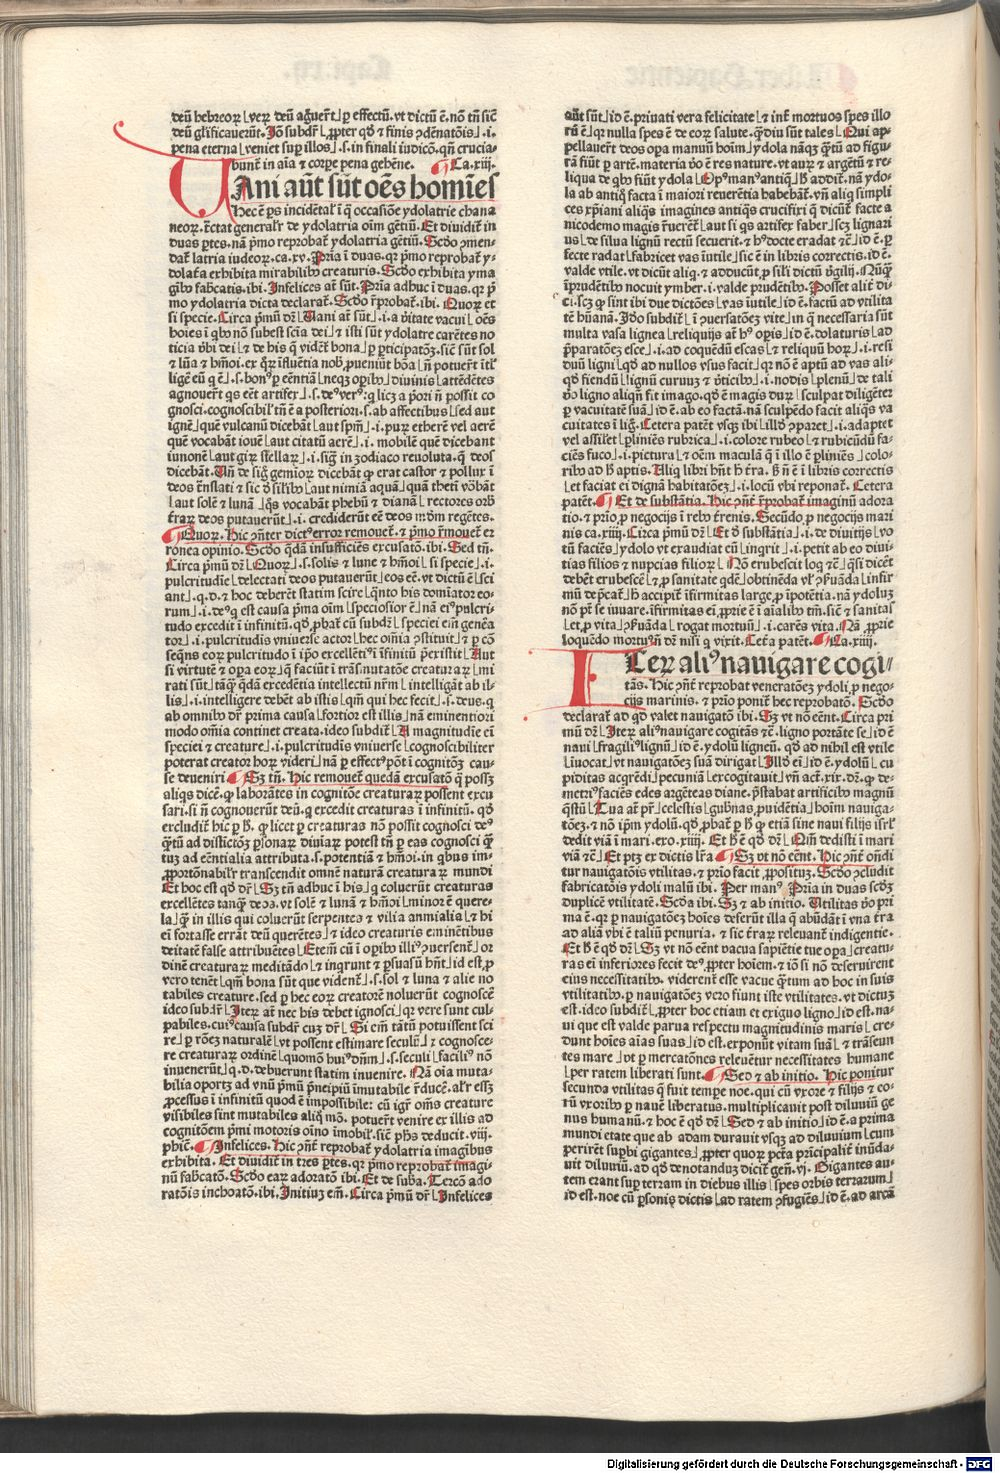 deū hebreoꝝ ⌊verꝫ deū aḡuer̄t⌋ ꝑ effectū. vt dictū ē. nō tn̄ sic̄
deū gl̄ificauerūt. Jō subdr̄ ⌊ꝓpter qd̓ ⁊ finis ꝯdēnatōis⌋ .i.
pena eterna ⌊veniet sup̱ illos⌋ .s. in finali iudicō. qn̄ crucia-
bunt̄ in aīa ⁊ corpe pena gehēne. Ca. xiij.
VAni aūt sūt oēs homīes
Hec ē ꝑs incidētal̓ ī q̄ occasiōe ydolatrie chana
neoꝝ. tractat general̓r de ydolatria oīm gētiū. Et diuidit̄ in
duas ꝑtes. nā p̄mo reprobat̄ ydolatria gētiū. Scd̓o ꝯmen-
dat̄ latria iudeoꝝ. ca. xv. Pria ī duas. qꝛ p̄mo reprobat̄ y-
dolatria exhibita mirabilibꝰ creaturis. Scd̓o exhibita yma
gībꝰ fabcatis. ibi. Infelices at̄ sūt. Pria adhuc ī duas. qꝛ p̄
mo ydolatria dicta declarat̄. Scd̓o r̄probat̄. ibi. Quoꝝ et
si specie. Circa p̄mū dr̄ ⌊Uani at̄ sūt⌋ .i. a v̓itate vacui ⌊oēs
hoīes ī qbꝰ nō subest scīa dei⌋ ⁊ isti sūt ydolatre carētes no
ticia v̓bi dei ⌊⁊ de his q̄ vident̄ bona⌋ ꝑ ꝑticipatōꝫ. sic̄ sūt sol
⁊ lūa ⁊ hm̄oi. ex qꝝ īfluētia nob̓ ꝓueniūt bōa ⌊ñ potuer̄t ītl̓
ligē eū q̄ ē⌋ .s. bonꝰ ꝑ eēntiā ⌊neqꝫ oꝑibꝰ⌋ diuinis ⌊attēdētes
agnouer̄t qs eēt artifex⌋ .s. deꝰ verꝰ. q̄ licꝫ a p̓ori ñ possit co
gnosci. cognoscibil̓ tn̄ ē a posteriori .s. ab affectibus ⌊sed aut
ignē⌋ quē vulcanū dicebāt ⌊aut spm̄⌋ .i. puꝝ etherē vel aerē
quē vocabāt iouē ⌊aut citatū aerē⌋ .i. mobilē quē dicebant
iunonē ⌊aut gir̄ stellaꝝ⌋ .i. sig̃ in zodiaco reuoluta. q̄ deos
dicebāt. Un̄ de sig̃ gemīoꝝ dicebāt ꝙ erat castor ⁊ pollux ī
deos trāslati ⁊ sic d̓ silībꝰ ⌊aut nimiā aquā⌋ quā thetī vobāt
⌊aut solē ⁊ lunā⌋ q̄s vocabāt phebū ⁊ dianā ⌊rectores orb̓
tr̄aꝝ deos putauerūt⌋ .i. crediderūt eē deos mōm regētes.
Quoꝝ. Hic ꝯn̄ter dictꝰ error remouet̄. ⁊ p̄mo r̄mouet̄ er
ronea opinio. Scd̓o qdā insufficiēs excusatō. ibi. Sed tn̄.
Circa p̄mū dr̄ ⌊Quoꝝ⌋ .s. solis ⁊ lune ⁊ hm̄oi ⌊si specie⌋ .i.
pulcritudie ⌊delectati deos putauerūt⌋ eos eē. vt dictū ē ⌊sci
ant⌋ .q.d. ⁊ hoc deberēt statim scire ⌊qnto his domīator eo-
rum⌋ .i. deꝰ q est causa p̄ma oīm ⌊speciosior ē⌋ nā eiꝰ pulcri-
tudo excedit ī infinitū. qd̓ ꝓbat̄ cū subdr̄ ⌊speciei em̄ genēa
tor⌋ .i. pulcritudis vniuerse actor ⌊hec oīnia ꝯstituit⌋ ⁊ ꝑ cō
seqn̄s eoꝝ pulcritudo ī ip̄o excellētiꝰ ī īfinitū p̄existit ⌊Aut
si virtutē ⁊ oꝑa eoꝝ⌋ q̄ faciūt ī trāsmutatōe creaturaꝝ ⌊mi
rati sūt⌋ tāqꝫ qdā excedētia intellectū nr̄m ⌊intelligāt ab il-
lis⌋ .i. intelligere debēt ab istis ⌊qm̄ qui hec fecit⌋ .s. deus. q
ab omnibꝰ dr̄ prima causa ⌊fortior est illis⌋ nā eminentiori
modo oīmia continet creata. ideo subdit̄ ⌊A magnitudie em̄
speciei ⁊ creature⌋ .i. pulcritudis vniuerse ⌊cognoscibiliter
poterat creator hoꝝ videri⌋ nā ꝑ effectꝰ pōt ī cognitōꝫ cau-
se deueniri. Sꝫ tn̄. Hic remouet̄ quedā excusatō q̄ possꝫ
aliqs dicē. ꝙ laborātes in cognitōe creaturaꝝ possent excu
sari. si ñ cognouerūt deū. q excedit creaturas ī infinitū. qd̓
excludit̄ hic ꝑ h̓. ꝙ licet ꝑ creaturas nō possit cognosci deꝰ
q̄tū ad distictōꝫ ꝑsonaꝝ diuinaꝝ potest tn̄ ꝑ eas cognosci q̄
tuꝫ ad eēntialia attributa .s. potentiā ⁊ hm̄oi. in qbus im-
ꝓportōnabil̓r transcendit omnē naturā creaturaꝝ mundi
Et hoc est qd̓ dr̄ ⌊Sꝫ tn̄ adhuc ī his⌋ q coluerūt creaturas
excellētes tanqꝫ deos. vt solē ⁊ lunā ⁊ hm̄oi ⌊minor ē quere-
la⌋ q̄ in illis qui coluerūt serpentes ⁊ vilia animalia ⌊⁊ hi
em̄ fortasse errāt deū querētes⌋ ⁊ ideo creaturis eminētibus
deitatē false attribuētes ⌊Etem̄ cū ī oꝑibꝰ illiꝰ ꝯuersent̄⌋ or
dinē creaturaꝝ meditādo ⌊⁊ inqrunt ⁊ ꝑsuasū hn̄t⌋ id est ꝓ
vero tenēt ⌊qm̄ bona sūt que vident̄⌋ .s. sol ⁊ luna ⁊ alie no
tabiles creature. sed ꝑ hec eoꝝ creatorē noluerūt cognoscē
ideo subdr̄ ⌊Iteꝝ at̄ nec his debet ignosci⌋ qꝛ vere sunt cul-
pabiles. cuiꝰ causa subdr̄ cuꝫ dr̄ ⌊Si em̄ tātū potuissent sci
re⌋ ꝑ rōeꝫ naturalē ⌊vt possent estimare seculū⌋ .i. cognosce-
re creaturaꝝ ordinē ⌊quomō huiꝰ dn̄m⌋ .s. seculi ⌊faciliꝰ nō
inuenerūt⌋ q.d. debuerunt statim inuenire. Nā oīa muta-
bilia oportꝫ ad vnū p̄mū p̄ncipiū īmutabile r̄ducē. al̓r essꝫ
ꝓcessus ī infinitū quod ē impossibile: cū igr̄ oms̄ creature
visibiles sint mutabiles aliq̄ mō. potuer̄t venire ex illis ad
cognitōem p̄mi motoris oīno īmobil̓. sic̄ ph̄s deducit. viij.
phic̄. Infelices. Hic ꝯn̄t̄ reprobat̄ ydolatria imagībus
exhibita. Et diuidit̄ in tres ꝑtes. qꝛ p̄mo reprobat̄ imagi-
nū fab̓catō. Scd̓o eaꝝ adoratō ibi. Et de suba. Tercō ado
ratōis inchoatō. ibi. Initiuꝫ em̄. Circa p̄mū dr̄ ⌊Infelices
aūt sūt⌋ id ē. priuati vera felicitate ⌊⁊ int̄ mortuos spes illo
rū ē⌋ qꝛ nulla spes ē de eoꝝ salute. q̄diu sūt tales ⌊Qui ap-
pellauer̄t deos opa manuū hoīm⌋ ydola nāqꝫ q̄tū ad figu
rā fiūt ꝑ artē. materia v̓o ē res nature. vt auꝝ ⁊ argētū ⁊ re-
liqua de qbꝰ fiūt ydola ⌊Opꝰ manꝰ antiq̄⌋ h̓ addit̄. nā ydo-
la ab antiq̄ facta ī maiori reuerētia habebāt̄. vn̄ aliq̄ simpli
ces xp̄iani aliq̄s imagines antiq̄s crucifixi q̄ dicūt̄ facte a
nicodemo magis r̄uerēt̄ ⌊aut si qs artifex faber⌋ scꝫ lignari
us ⌊de silua lignū rectū secuerit. ⁊ hꝰ docte eradat ⁊c̄⌋ id ē. ꝑ
fecte radat ⌊fabricet vas īutile⌋ sic ē in libris correctis. id ē.
valde vtile. vt dicūt aliq. ⁊ adducūt ꝓ sil̓i dictū v̓gilij. Nūq̄
īprudētibꝰ nocuit ymber .i. valde prudētibꝰ. Posset alit̄ di-
ci. scꝫ ꝙ sint ibi due dictōes ⌊vas īutile⌋ id ē. factū ad vtilita
tē hūanā. Jdo subdit̄ ⌊ī ꝯuersatōeꝫ vite⌋ in q̄ necessaria sūt
multa vasa lignea ⌊reliquijs at̄ hꝰ oꝑis⌋ id ē. dolaturis ⌊ad
p̄paratōeꝫ esce⌋ .i. ad coquēdū escas ⌊⁊ reliquū hoꝝ⌋ .i. resi
duū ligni ⌊qd̓ ad nullos vsus facit⌋ qꝛ nō ē aptū ad vas ali-
qd̓ fiendū ⌊lignū curuuꝫ ⁊ v̓ticibꝰ⌋ .i. nodis ⌊plenū⌋ de tali
v̓o ligno aliqn̄ fit imago. qd̓ ē magis duꝝ ⌊sculpat diligēter
ꝑ vacuitatē suā⌋ id ē. ab eo factā. nā sculpēdo facit aliq̄s va
cuitates ī lig̃. Cetera patēt vsqꝫ ibi ⌊illd̓ ꝯparet⌋ .i. adaptet
vel assilet ⌊ꝑliniēs rubrica⌋ .i. colore rubeo ⌊⁊ rubicūdū fa-
ciēs fuco⌋ .i. pictura ⌊⁊ oēm maculā q̄ ī illo ē ꝑliniēs⌋ colo-
ribꝰ ad h̓ aptis. Aliq libri hn̄t h̓ tr̄a. h̓ ñ ē ī libris correctis
⌊et faciat ei dignā habitatōeꝫ⌋ .i. locū vbi reponat̄. Cetera
patēt. Et de substātia. Hic ꝯn̄t̄ r̄probat̄ imaginū adora
tio. ⁊ prīo ꝓ negocijs ī rebꝰ tr̄enis. Secūdo ꝓ negocijs mari
nis ca. xiiij. Circa p̄mū dr̄. ⌊Et d̓ substātia⌋ .i. de diuitijs ⌊vo
tū faciēs⌋ ydolo vt exaudiat eū ⌊inqrit⌋ .i. petit ab eo diui-
tias filios ⁊ nupcias filioꝝ ⌊Nō erubescit loq ⁊c̄⌋ q̄si dicēt̄
debēt erubescē ⌊⁊ ꝓ sanitate qdē⌋ obtinēda vl̓ ꝯsuāda ⌊infir
mū dep̄cat̄⌋ h̓ accipit̄ īfirmitas large. ꝓ īpotētia. nā ydoluꝫ
nō pt̄ se iuuare. īfirmitas em̄ ꝓprie ē ī aīalibꝰ tm̄. sic̄ ⁊ sanitas
⌊et ꝓ vita⌋ ꝯsuāda ⌊rogat mortuū⌋ .i. carēs vita. Nā ꝓprie
loquēdo mortuū dr̄ nisi q vixit. Ceter̄a patēt. Ca. xiiij.
ITeꝝ aliꝰ nauigare cogi-
tās. Hic ꝯn̄t̄ reprobat veneratōeꝫ ydoli ꝓ nego-
cijs marinis. ⁊ prīo ponit̄ hec reprobatō. Scd̓o
declarat̄ ad qd̓ valet nauigatō ibi. Sꝫ vt nō eēnt. Circa pri
mū dr̄. ⌊Iteꝝ aliꝰ nauigare cogitās ⁊c̄. ligno portāte se⌋ id ē
naui ⌊fragiliꝰ lignū⌋ id ē. ydolū ligneū. qd̓ ad nihil est vtile
⌊īuocat⌋ vt nauigatōeꝫ suā dirigat ⌊Ill̓d ei̓⌋ id ē. ydolū ⌊cu
piditas acqrēdi⌋ pecuniā ⌊excogitauit⌋ vn̄ act̄. xix. dr̄. ꝙ de-
metriꝰ faciēs edes argēteas diane. p̄stabat artificibꝰ magnū
q̄stū ⌊Tua at̄ pr̄⌋ celestis ⌊gub̓nas ꝓuidētia⌋ hoīm nauiga-
tōeꝫ. ⁊ nō ip̄m ydolū. qd̓ ꝓbat̄ ꝑ h̓ ꝙ etiā sine naui filijs isr̄l̓
dedit viā ī mari. exo. xiiij. Et h̓ ē qd̓ dr̄. ⌊Qm̄ dedisti ī mari
viā ⁊c̄⌋ Et ptꝫ ex dictis lr̄a. Sꝫ vt nō eēnt. Hic ꝯn̄t̄ on̄di
tur nauigatōis vtilitas. ⁊ prīo facit ꝓpositꝫ. Scd̓o ꝯcludit
fabricatōis ydoli malū ibi. Per manꝰ. Pria in duas scd̓ꝫ
duplicē vtilitatē. Scd̓a ibi. Sꝫ ⁊ ab initio. Utilitas v̓o pri
ma ē. qꝛ ꝑ nauigatōeꝫ hoīes deferūt illa q̄ abūdāt ī vna tr̄a
ad aliā vbi ē taliū penuria. ⁊ sic tr̄aꝝ releuant̄ indigentie.
Et h̓ ē qd̓ dr̄. ⌊Sꝫ vt nō eēnt vacua sapiētie tue oꝑa⌋ creatu-
ras em̄ inferiores fecit deꝰ ꝓpter hoīem. ⁊ iō si nō deseruirent
eius necessitatibꝰ. viderent̄ esse vacue q̄tum ad hoc in suis
vtilitatibꝰ. ꝑ nauigatōeꝫ vero fiunt iste vtilitates. vt dictuꝫ
est. ideo subdit̄ ⌊ꝓpter hoc etiam et exiguo ligno⌋ id est. na-
ui que est valde parua respectu magnitudinis maris ⌊cre-
dunt hoīes aīas suas⌋ id est. exponūt vitam suā ⌊⁊ trāseun
tes mare⌋ vt ꝑ mercatōnes releuētur necessitates humane
⌊per ratem liberati sunt. Sed ⁊ ab initio. Hic ponitur
secunda vtilitas q̄ fuit tempe noe. qui cū vxore ⁊ filijs ⁊ eo-
rū vxoribꝰ ꝑ nauē liberatus. multiplicauit post diluuiū ge
nus humanū. ⁊ hoc ē qd̓ dr̄ ⌊Sed ⁊ ab initio⌋ id ē. a prima
mundi etate que ab adam durauit vsqꝫ ad diluuium ⌊cum
perirēt suꝑbi gigantes⌋ ꝓpter quoꝝ pctā prīcipalit̄ inūda-
uit diluuiū. ad qd̓ denotanduꝫ dicit̄ gen̄. vj. Gigantes au-
tem erant suꝑ terram in diebus illis ⌊spes orbis terrarum⌋
id est. noe cū ꝑsonis dictis ⌊ad ratem ꝯfugiēs⌋ id ē. ad arcā
Digitalisierung gefördert durch die Deutsche Forschungsgemeinschaft - DFG